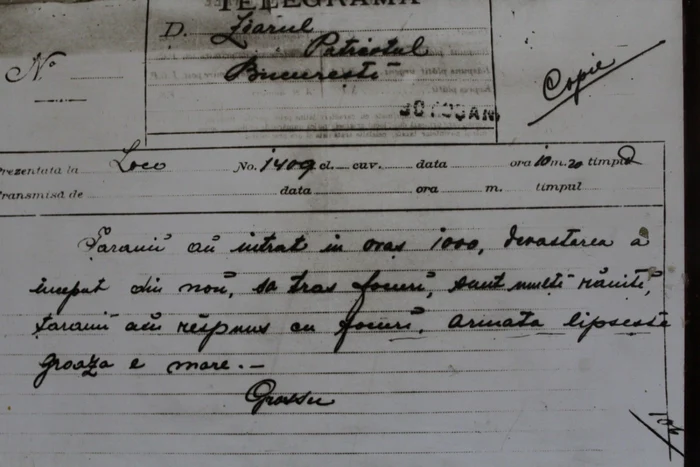 TELEGRAMA
D. Ziarul
Patriotul
Bucuresti
No
Copie
Prezentata la Loco No. 1409 cl. cuv. data ora 10 m. 20 timpul D
Transmisă de data ora m. timpul
Țăranii au intrat in oras 1000, devastarea a
inceput din noŭ, sa tras focuri, sunt multi răniti,
țăranii aŭ respuns cu focuri. armata lipseste
groaza e mare. —
Grossu